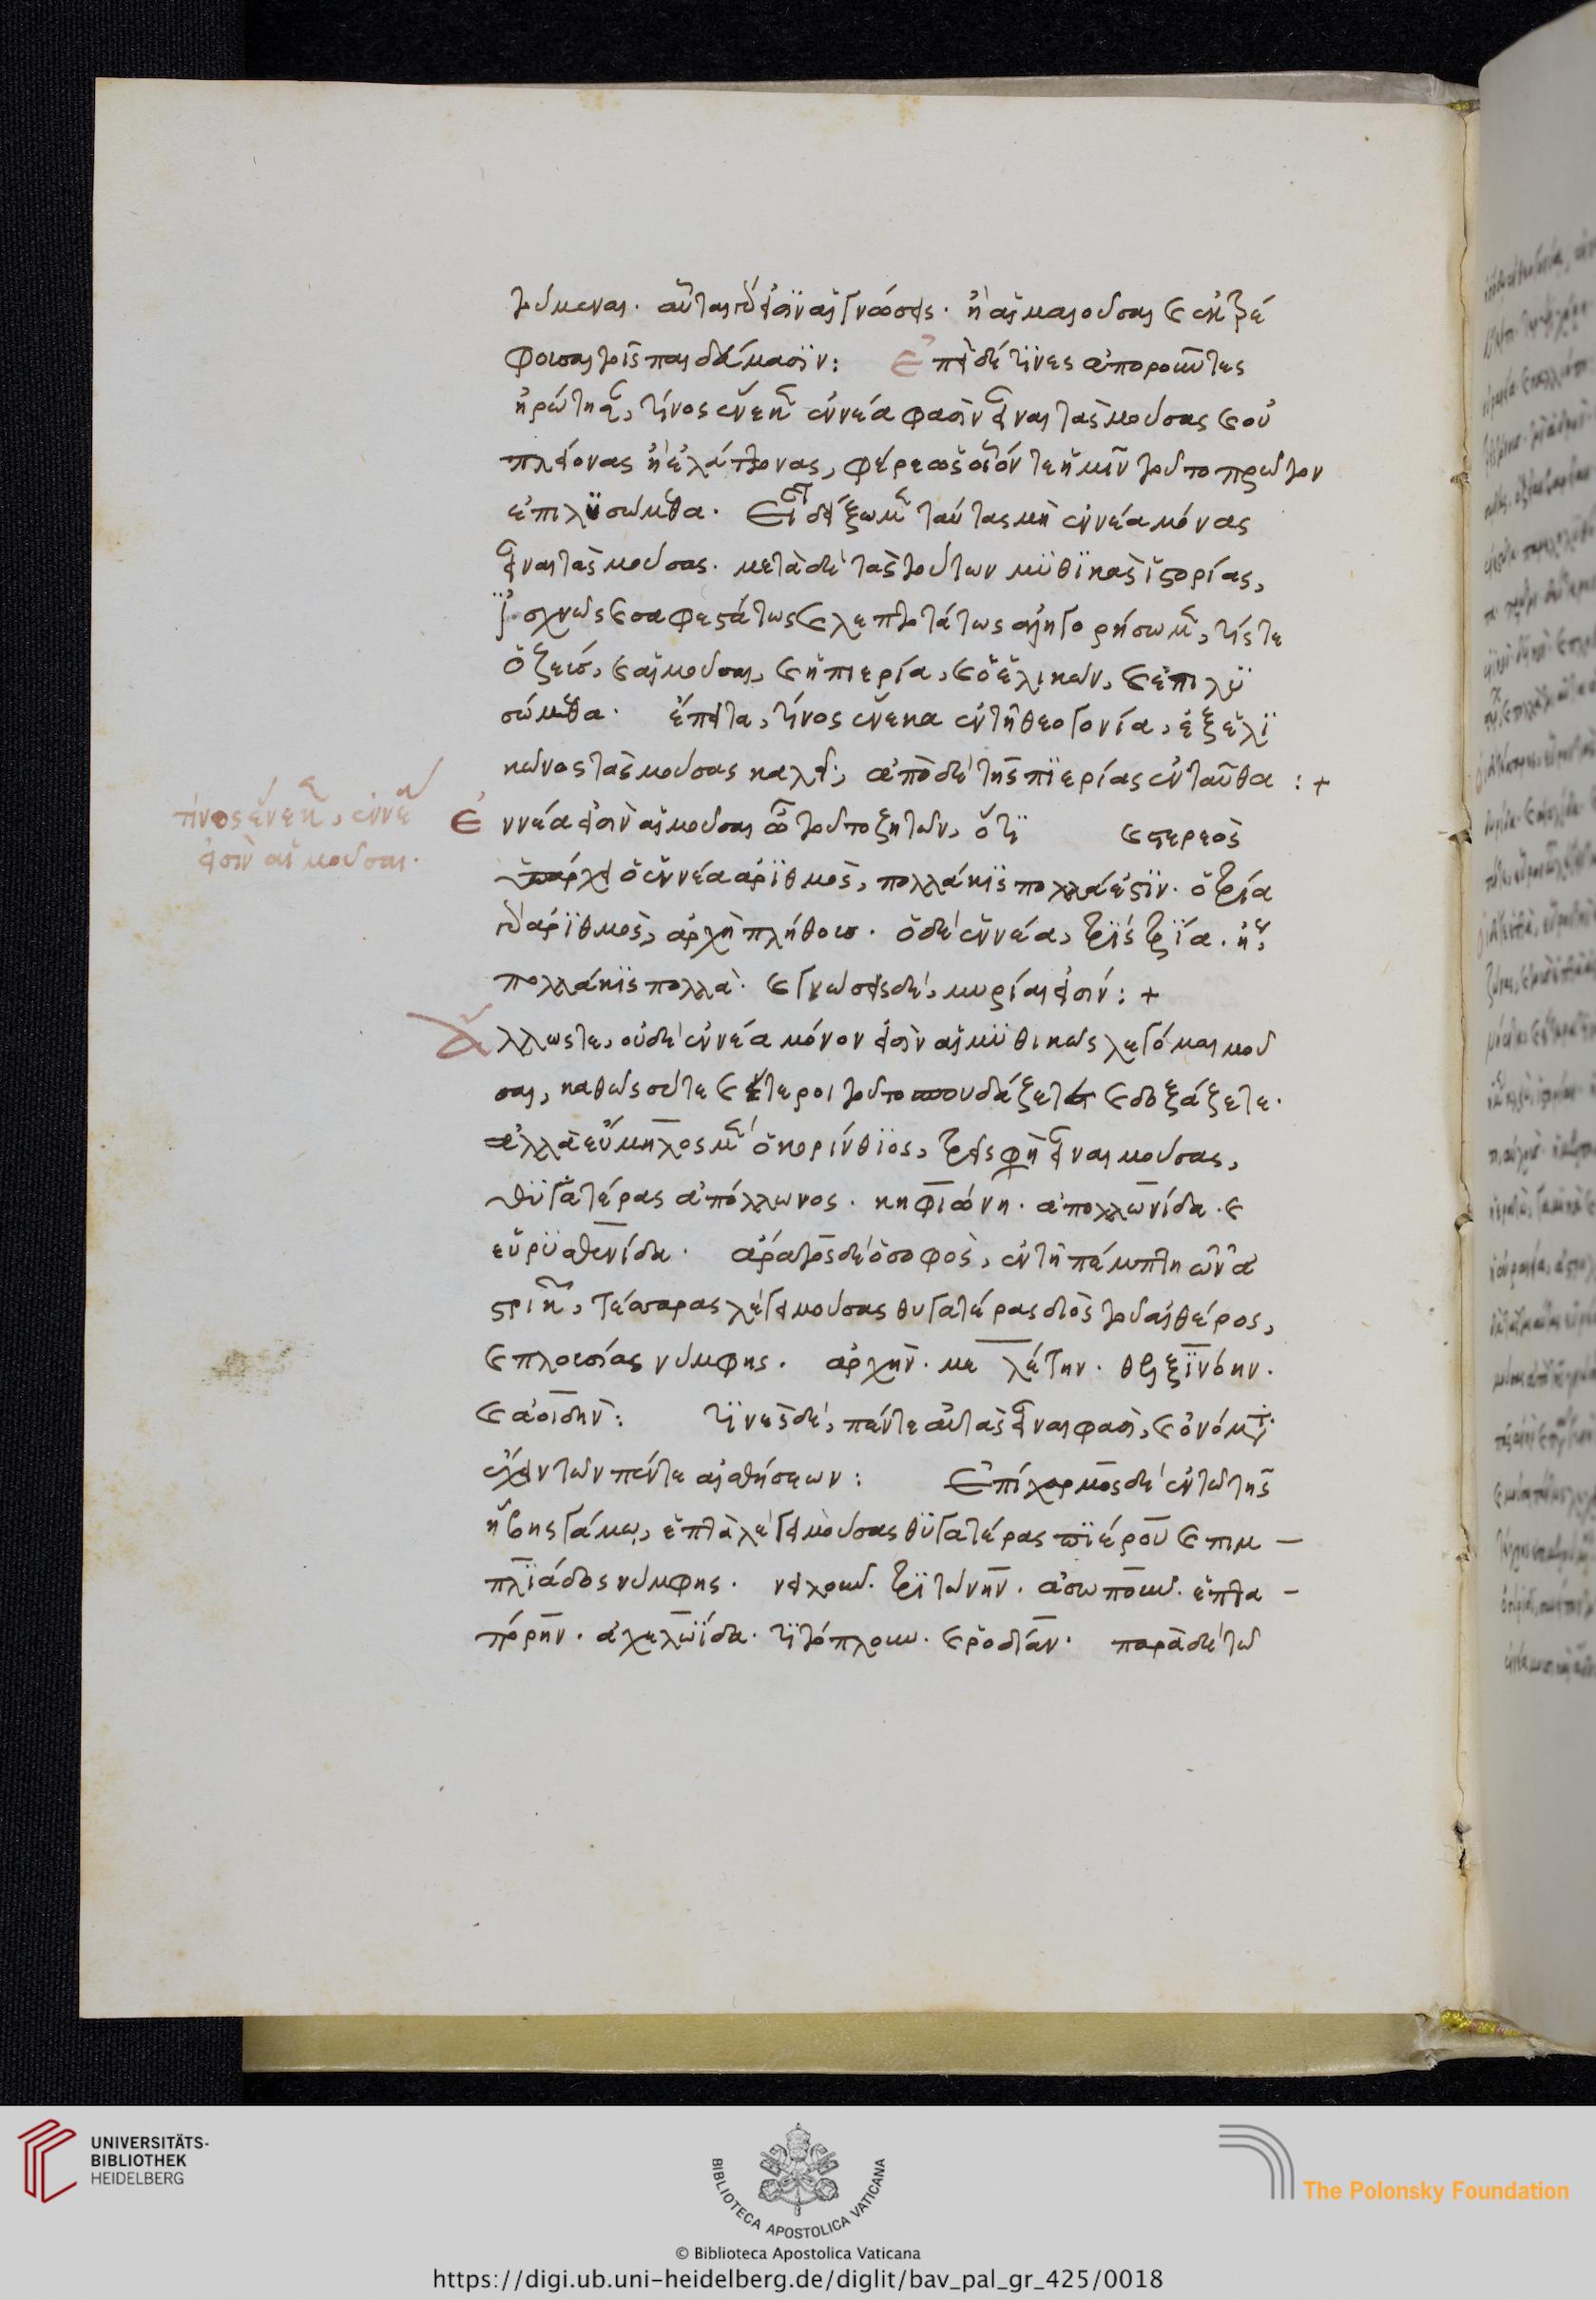 τούμεναι. αὗται γάρ εἰσϊν αἱ γνώσεις. ἢ αἱ μαιοῦσαι καὶ ἐκτρέ
φουσαι τοῖς παιδεύμασϊν: Ἐπεὶ δέ τϊνες ἀποροῦντες
ἠρώτησαν, τίνος ἕνεκεν ἐννέα φασὶν εἶναι τὰς μούσας καὶ οὐ
πλείονας ἢ ἐλάττονας, φέρε ὡς οἷόν τε ἡμῖν τοῦτο πρῶτον
ἐπιλϋσώμεθα. Εἶτα δείξωμεν ταύτας μὴ ἐννέα μόνας
εἶναι τὰς μούσας. μετὰ δὲ τὰς τούτων μϋθϊκὰς ἱστορίας,
ἰσχνῶς καὶ σαφεστάτως καὶ λεπτοτάτως ἀλληγορήσωμεν, τίς τε
ὁ ζεύς, καὶ αἱ μοῦσαι, καὶ ἡ πιερία, καὶ ὁ ἑλικών, καὶ ἐπιλϋ
σώμεθα. ἔπειτα, τίνος ἕνεκα ἐν τῇ θεογονία, ἐξ ἑλϊ
κῶνος τὰς μούσας καλεῖ, ἀπὸ δὲ τῆς πϊερίας ἐνταῦθα :+
τίνος ἕνεκεν, ἐννέα
εἰσὶν αἱ μοῦσαι.
Ἐννέα εἰσὶν αἱ μοῦσαι ὦ τοῦτο ζητῶν, ὅτϊ καὶ στερεὸς
ὑπάρχει ὁ ἐννέα ἀρϊθμὸς, πολλάκϊς πολλά εἰσϊν. ὁ τρία
γὰρ ἀρϊθμὸς, ἀρχὴ πλήθους. ὁ δὲ ἐννέα, τρϊς τρϊα. ἤτοι
πολλάκϊς πολλὰ. καὶ γνώσεις δὲ, μυρίαι εἰσίν:+
Ἄλλως τε, οὐδὲ ἐννέα μόνον εἰσὶν αἱ μϋθικῶς λεγόμεναι μοῦ
σαι, καθὼς σύ τε καὶ ἕτεροι τοῦτο σπουδάζετε καὶ δοξάζετε.
ἀλλὰ εὔμηλος μὲν ὁ κορίνθϊος, τρεῖς φησὶν εἶναι μούσας,
θϋγατέρας ἀπόλλωνος. κηφισόνη. ἀπολλωνίδα. καὶ
εὐρϋσθενίδα. ἄρατος δὲ ὁ σοφὸς, ἐν τῆ πέμπτη τῶν ἀ
στρικῶν, τέσσαρας λέγει μούσας θυγατέρας διὸς τοῦ αἰθέρος,
καὶ πλουσίας νύμφης. ἀρχὴν. μελέτην. θελξϊνόην.
καὶ ἀοιδὴν: τϊνὲς δὲ, πέντε αὐτὰς εἶναι φασὶ, καὶ ὀνόματα
ἔχειν τῶν πέντε αἰσθήσεων: Ἐπίχαρμος δὲ ἐν τῶ τῆς
ἥβης γάμω, ἑπτὰ λέγει μούσας θϋγατέρας πϊέρου καὶ πιμ
πλϊάδος νύμφης. νειλοῦν. τρϊτώνην. ἀσωποῦν. ἑπτα
πόρην. ἀχελωϊδα. τϊτόπλουν. καὶ ῥοδίαν. παρὰ δὲ τῶ
UNIVERSITÄTS-
BIBLIOTHEK
HEIDELBERG
BIBLIOTECA APOSTOLICA VATICANA
The Polonsky Foundation
© Biblioteca Apostolica Vaticana
https://digi.ub.uni-heidelberg.de/diglit/bav_pal_gr_425/0018